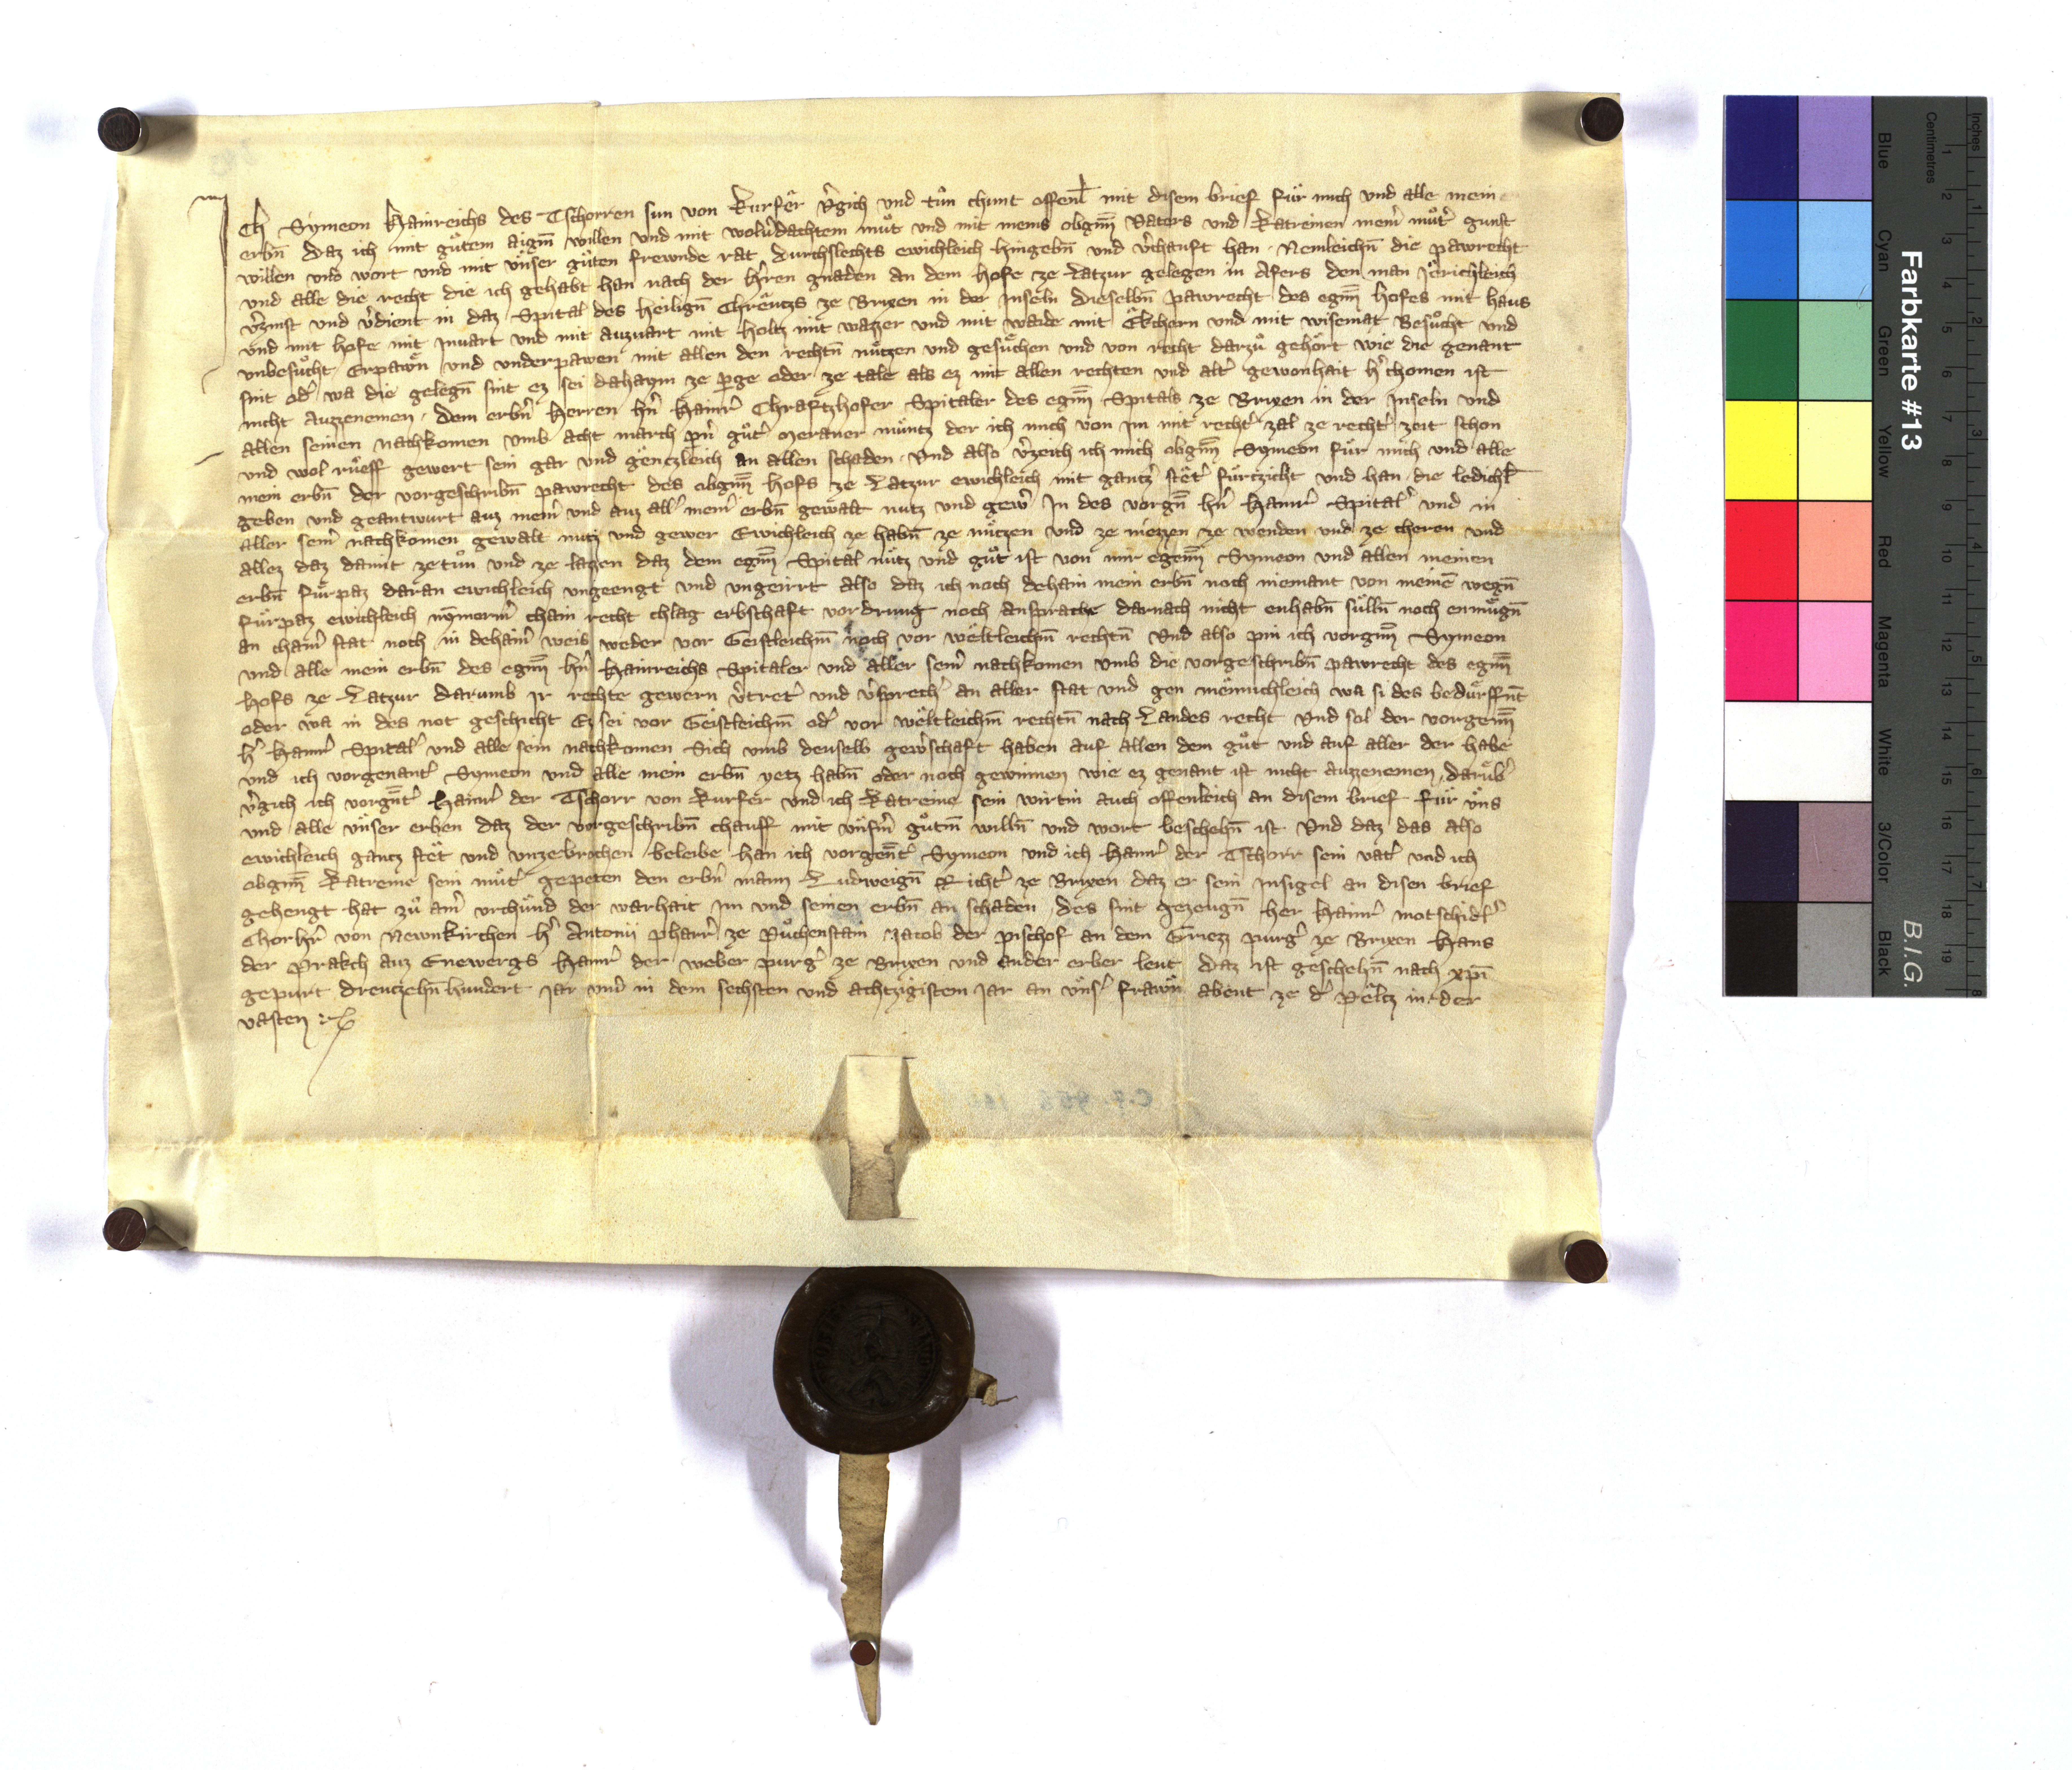 Ich Symeon Hainreichs des Tschorren sun von kurfer v̓gich und tůn chunt offenl̄ mit disem brief für mich und alle mein
erbn̄ daz ich mit gůtem aigm̄ willen und mit wolv̓dachtem můt und mit meins obgm̄ vaters und katreinen meinr̓ můtr̓ gunst
willen und wort und mit ünser gůten frewnde rat durchslechts ewichleich hingebn̄ und v̓chauft han Nemleichn̄ die pawrecht
und alle die recht die ich gehabt han nach der hr̓ren gnaden an dem hofe ze Latzur gelegen in Afers den man Jërichleich
v̓zinst und v̓dient in daz Spital des heiligen Chrëutzs ze Brixen in der Inseln dieselbn̄ pawrecht des egm̄ hofes mit haus
und mit hofe mit Invart und mit auzvart mit holtz mit wazzer und mit waide mit Ëkchern und mit wisemat Besůcht und
unbesůcht Erpawn̄ und underpawen mit allen den rechtn̄ nützen und gesůchen und von recht darzů gehört wie die genant
sint od̓ wa die gelegn̄ sint ez sei dahaym ze perge oder ze tale als ez mit allen rechten und alt̓ gewonhait h̓chomen ist
nicht auzzenemen dem erbn̓ herren hn̓ Hainr̓ Chraftzhofer Spitaler des egm̄ Spitals ze Brixen in der Inseln und
allen seinen nachkomen umb acht march pn̓ gůt̓ meraner müntz der ich mich von im mit recht̓ zal ze recht̓ zeit schon
und wol rüeff gewert sein gar und gënczleich an allen schaden Und also v̓zeich ich mich obgm̄ Symeon für mich und alle
mein erbn̄ der vorgeschribn̄ pawrecht des obgm̄ hofs ze Latzur ewichleich mit gantz̓ stët̓ fürtzicht und han die ledichl̄
geben und geantwurt auz mein̓ und auz all̓ mein̓ erbn̄ gewalt nutz und gew̓ In des vorgn̄ hn̓ Hainr̓ Spital̓ und in
aller sein̓ nachkomen gewalt nutz und gewer Ewichleich ze habn̄ ze nützen und ze niezzen ze wenden und ze cheren und
allez daz damit zetůn und ze lazzen daz dem egm̄ Spital nütz und gůt ist von mir egenm̄ Symeon und allen meinen
erbn̄ fürpaz daran ewichleich ungeengt und ungeirrt also daz ich noch dehain mein erbn̄ noch niemant von meinē wegn̄
fürpaz ewichleich nymmerm̓ chain recht chlag erbschaft vordrung noch ansprache darnach nicht enhabn̄ sülln̄ noch enmügn̄
an chain̓ stat noch in dehain̓ weis weder vor Geistleichm̄ noch vor wëltleichm̄ rechtn̄ Und also pin ich vorgm̄ Symeon
und alle mein erbn̄ des egm̄ hn̓ Hainreichs Spitaler und aller sein̓ nachkomen umb die vorgeschribn̄ pawrecht des egm̄
hofs ze Latzur darumb ir rechte gewern v̓tret̓ und v̓sprech̓ an aller stat und gen mënnichleich wa si des bedürffn̄t
oder wa in des not geschicht Ez sei vor Geistleichm̄ od̓ vor wëltleichm̄ rechtn̄ nach Landes recht Und sol der vorgenm̄
h̓ Hainr̓ Spital̓ und alle sein nachkomen Sich umb denselb gew̓schaft haben auf allen dem gůt und auf aller der habe
und ich vorgenant̓ Symeon und alle mein erbn̄ yetz habn̄ oder noch gewinnen wie ez genant ist nicht auzzenemen darüb̓
v̓gich ich vorgn̄t̓ Hainr̓ der Tschorr von kurfer und ich katreine sein wirtin auch offenleich an disem brief für üns
und alle ünser erben daz der vorgeschribn̄ chauff mit ünsm̓ gůtm̄ willn̄ und wort beschehn̄ ist Und daz das also
ewichleich gantz stët und unzebrochen beleibe han ich vorgen̄t̓ Symeon und ich Hainr̓ der Tschorr sein vat̓ und ich
obgm̄ katreine sein můt̓ gepeten den erbn̓ mann Ludweign̄ Richt̓ ze Brixen daz er sein Insigel an disen brief
gehengt hat zů ain̓ urchünd der warhait im und seinen erbn̄ an schaden des sint gezeugn̄ her Hainr̓ Motschidl̓
Chorh̓r von Newnkirchen h̓ Antonii pharr̓ ze Půchenstain Jacob der pischof an dem Griezz purg̓ ze Brixen Hans
der Prakch auz Enewergs Hainr̓ der weber purg̓ ze Brixen und ander erber leut Daz ist geschehn̄ nach xp̄i
gepurt dreutzehn̄hundert Jar und in dem sechsten und achtzigistem Jar an üns̓ frawn̄ abent ze d̓ Pëltz in der
vasten
Farbkarte #13
B.I.G.
Inches
Centimetres
1 2 3 4 5 6 7 8
1 2 3 4 5 6 7 8 9 10 11 12 13 14 15 16 17 18 19
Blue
Cyan
Green
Yellow
Red
Magenta
White
3/Color
Black